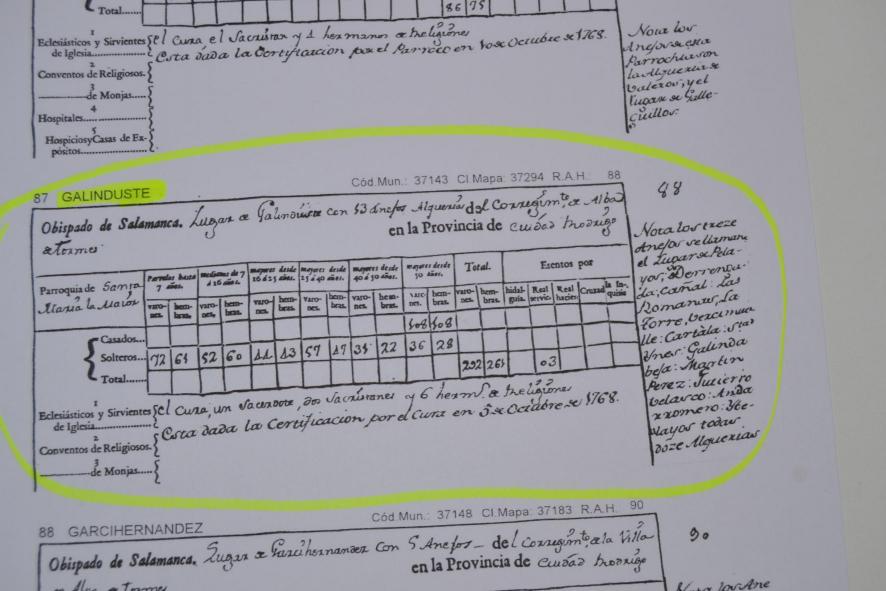 Total...... 86 75
1
Eclesiásticos y Sirvientes de Iglesia........
el Cura el Sacristan y 1 hermano de Religiones
Esta dada la Certificacion por el Parroco en 10 de Octubre de 1768.
2
Conventos de Religiosos.
3
———de Monjas.....
4
Hospitales.................
5
Hospicios y Casas de Expósitos.................
Nota los
Anejos de esta
Parrochia son
la Alqueria de
y el
Lugar de
87 GALINDUSTE Cód.Mun.: 37143 Cl.Mapa: 37294 R.A.H. 88
88
Obispado de Salamanca. Lugar de Galinduste con 13 Anejos Alquerias del Corregimto. de Alba
de Tormes en la Provincia de Ciudad Rodrigo
Parroquia de Santa
Maria la Maior
Parvulos hasta 7 años. medianos de 7 á 16 años. mayores desde 16 á 25 años. mayores desde 25 á 40 años. mayores desde 40 á 50 años. mayores desde 50 años. Total. Esentos por
varones. hembras. varones. hembras. varones. hembras. varones. hembras. varones. hembras. varones. hembras. varones. hembras. hidalguía. Real servic. Real hacien. Cruzad. la Inquisic
Casados... 108 108
Solteros... 72 61 52 60 57 47 22 36 28
Total...... 03
1
Eclesiásticos y Sirvientes de Iglesia........
el Cura, un Sacerdote, dos Sacristanes y 6 herms. de Religiones
Esta dada la Certificacion por el Cura en 5 de Octubre de 1768.
2
Conventos de Religiosos.
3
———de Monjas.....
Nota los treze
Anejos se llaman
el Lugar de Pela-
yos:
Las
Romanas, La
Torre,
Galinda
Martin
Perez: Gutierro
Velasco: Anda
rromero:
layos todas
doze Alquerias
88 GARCIHERNANDEZ Cód.Mun.: 37148 Cl.Mapa: 37183 R.A.H. 90
90
Obispado de Salamanca. Lugar de Garcihernandez con 5 Anejos — del Corregimto. de la Villa
de Alba de Tormes en la Provincia de Ciudad Rodrigo
Nota los Ane